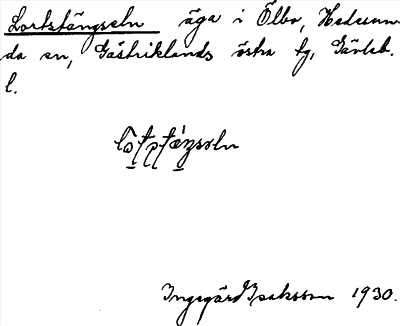 Lortstängseln äga i Ölbo, Hedesun-
da sn, Gästriklands östra tg, Gävleb.
l.
Ingegärd Isaksson 1930.